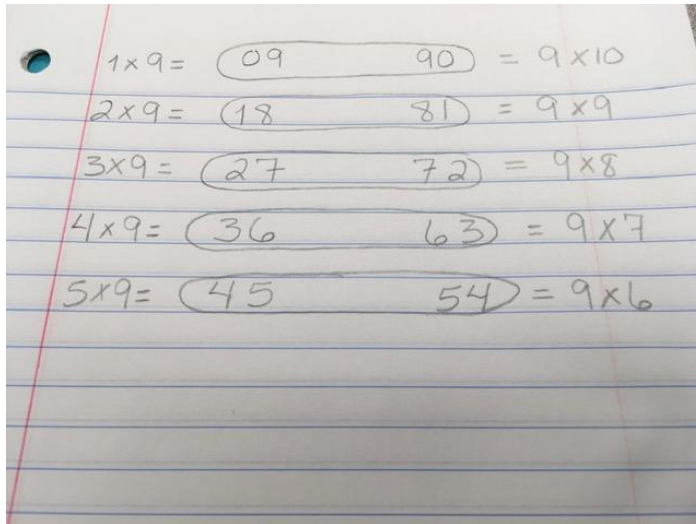 1×9= 09 90 = 9×10
2×9= 18 81 = 9×9
3×9= 27 72 = 9×8
4×9= 36 63 = 9×7
5×9= 45 54 = 9×6